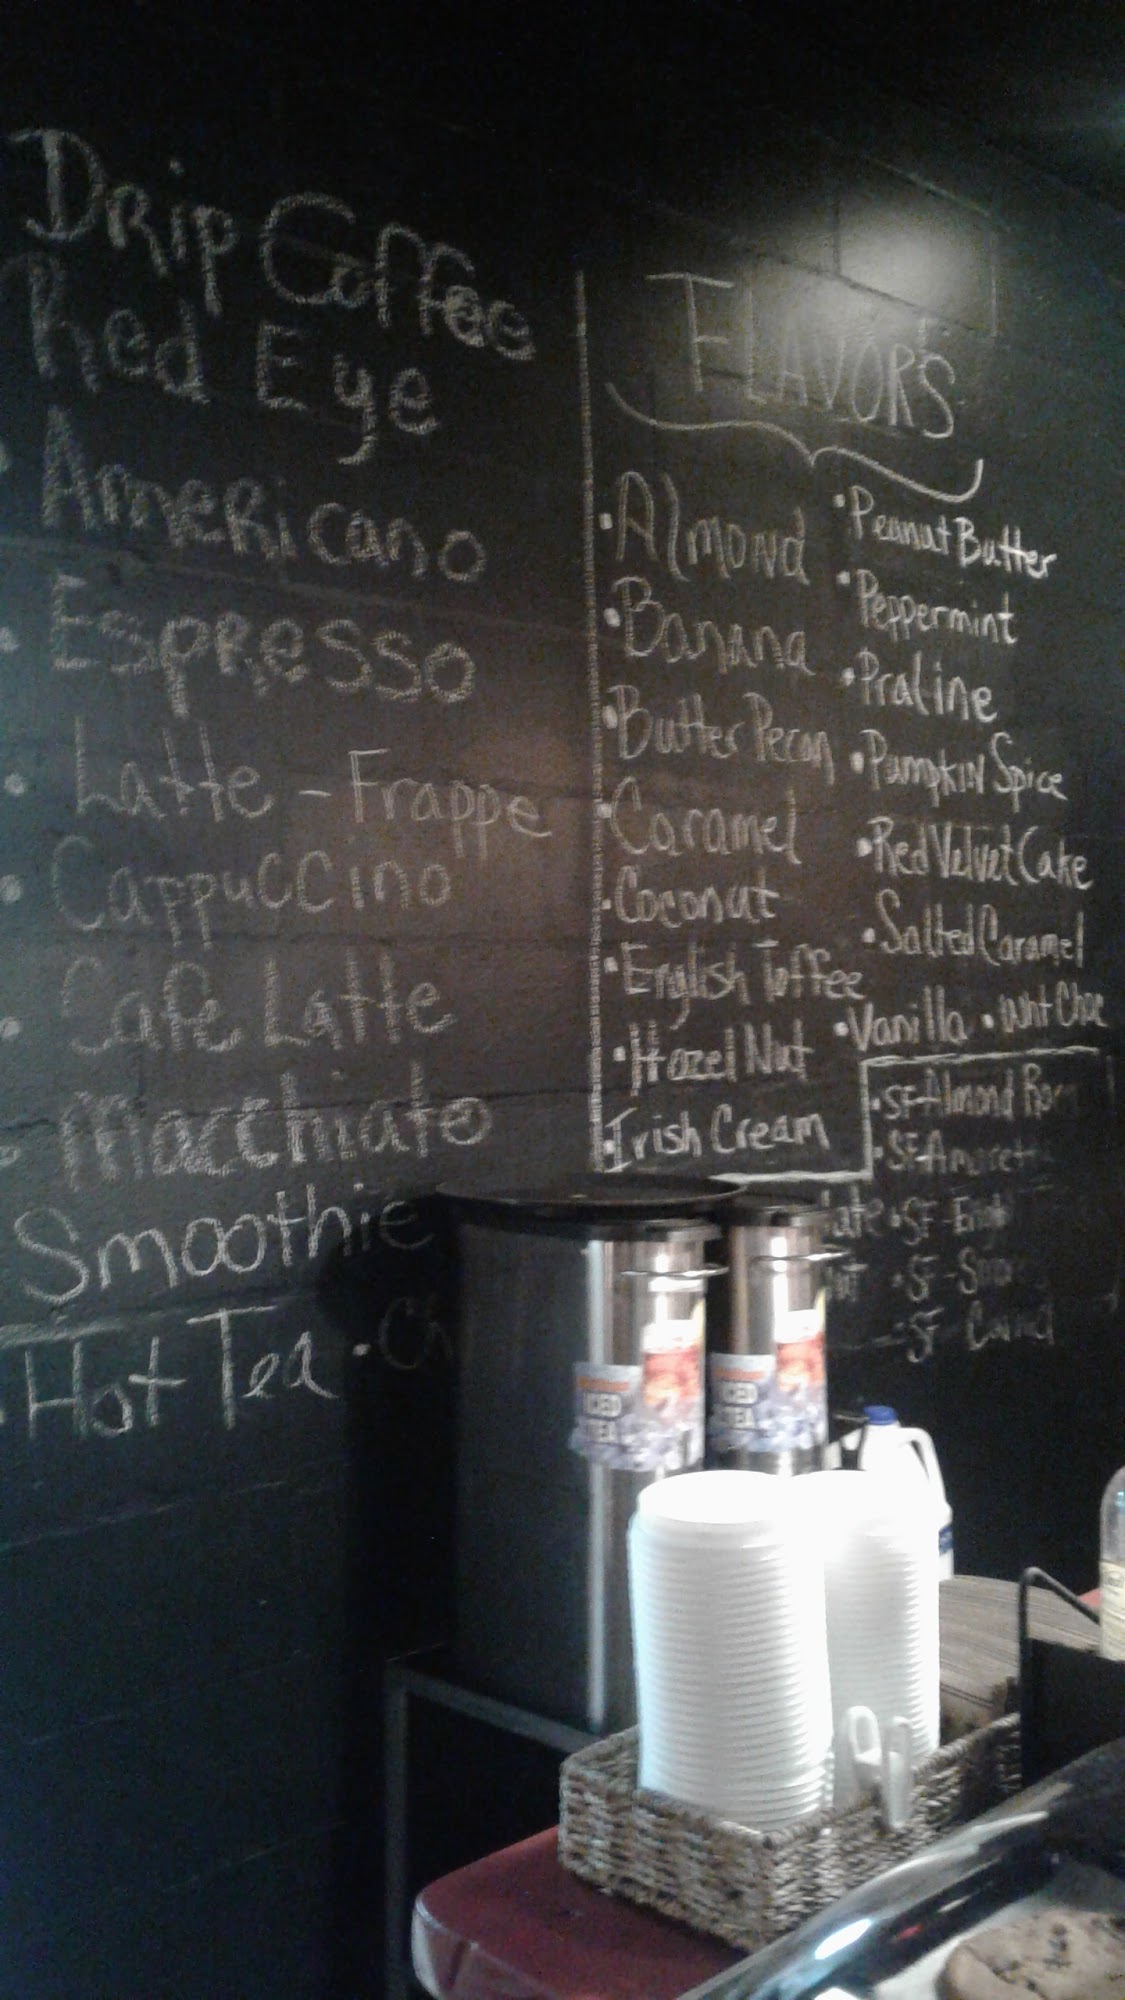 Drip Coffee
Red Eye
• Americano
• Espresso
• Latte - Frappe
• Cappuccino
• Cafe Latte
• Macchiato
Smoothie
• Hot Tea •
FLAVOR'S
• Almond
• Banana
• Butter Pecan
• Caramel
• Coconut
• English Toffee
• Hazel Nut
• Irish Cream
• Peanut Butter
• Peppermint
• Praline
• Pumpkin Spice
• Red Velvet Cake
• Salted Caramel
• Vanilla • Wht Choc
• SF-Almond
• SF
• SF -
• SF -
• SF
ICED
TEA
ICED
TEA